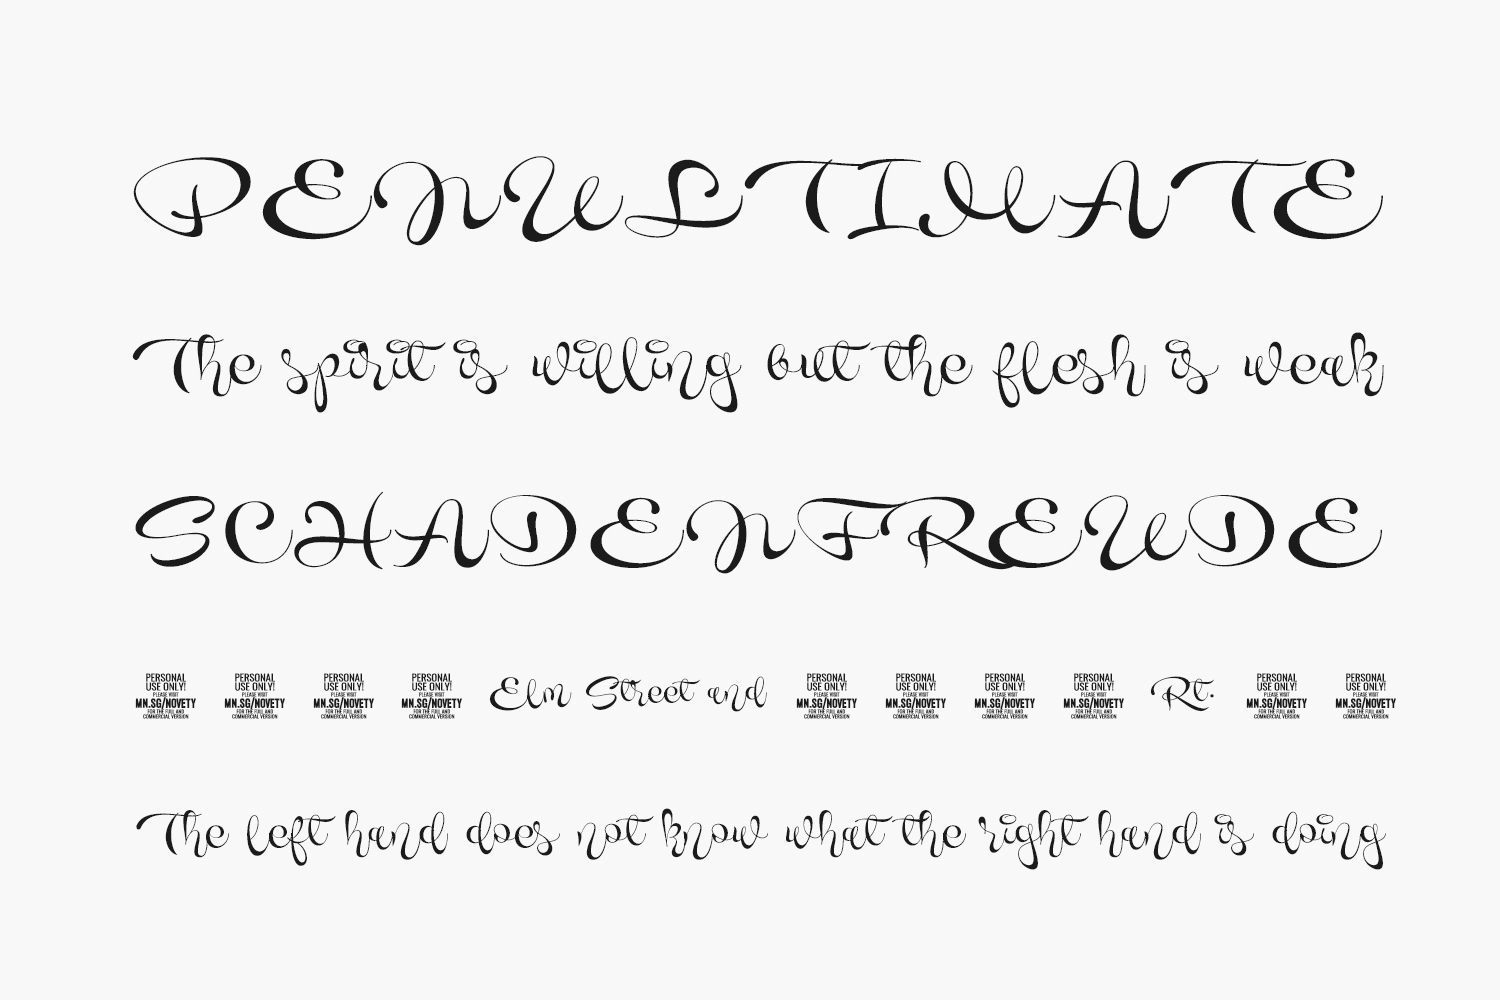 PENULTIMATE
The spirit is willing but the flesh is weak
SCHADENFREUDE
PERSONAL USE ONLY! PLEASE VISIT MN.SG/NOVETY FOR THE FULL AND COMMERCIAL VERSION PERSONAL USE ONLY! PLEASE VISIT MN.SG/NOVETY FOR THE FULL AND COMMERCIAL VERSION PERSONAL USE ONLY! PLEASE VISIT MN.SG/NOVETY FOR THE FULL AND COMMERCIAL VERSION PERSONAL USE ONLY! PLEASE VISIT MN.SG/NOVETY FOR THE FULL AND COMMERCIAL VERSION Elm Street and PERSONAL USE ONLY! PLEASE VISIT MN.SG/NOVETY FOR THE FULL AND COMMERCIAL VERSION PERSONAL USE ONLY! PLEASE VISIT MN.SG/NOVETY FOR THE FULL AND COMMERCIAL VERSION PERSONAL USE ONLY! PLEASE VISIT MN.SG/NOVETY FOR THE FULL AND COMMERCIAL VERSION PERSONAL USE ONLY! PLEASE VISIT MN.SG/NOVETY FOR THE FULL AND COMMERCIAL VERSION Rt. PERSONAL USE ONLY! PLEASE VISIT MN.SG/NOVETY FOR THE FULL AND COMMERCIAL VERSION PERSONAL USE ONLY! PLEASE VISIT MN.SG/NOVETY FOR THE FULL AND COMMERCIAL VERSION
The left hand does not know what the right hand is doing